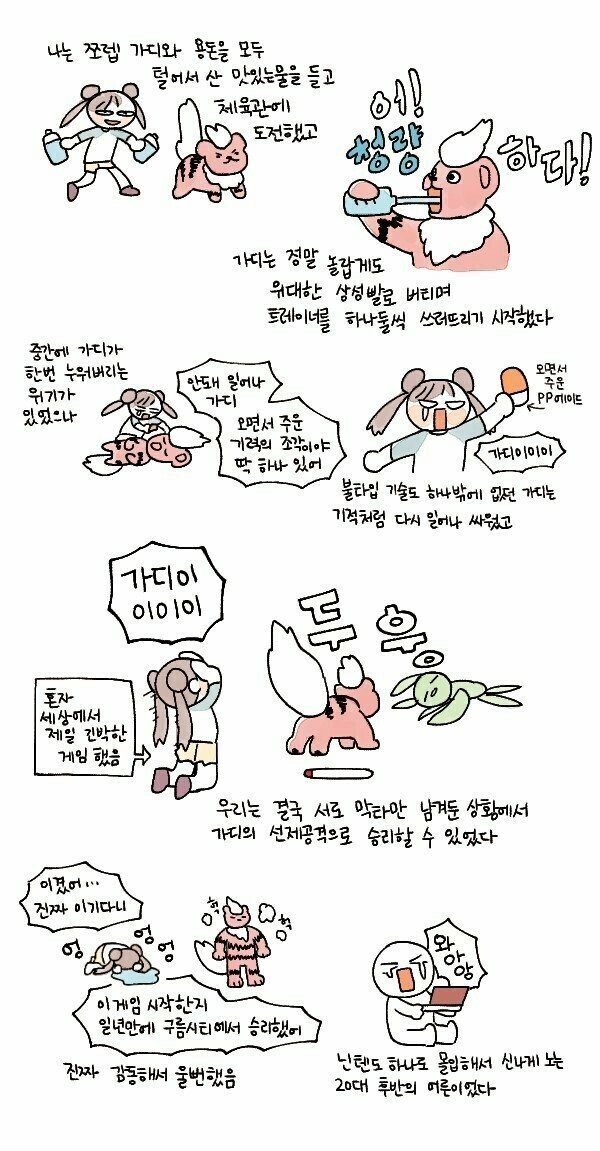 나는 쪼렙 가디와 용돈을 모두
털어서 산 맛있는물을 들고
체육관에
도전했고
어!
청량
하다!
가디는 정말 놀랍게도
위대한 상성빨로 버티며
트레이너를 하나둘씩 쓰러뜨리기 시작했다
중간에 가디가
한번 누워버리는
위기가
있었으나
안돼 일어나
가디
오면서 주운
기력의 조각이야
딱 하나 있어
오면서
주운
PP에이드
가디이이이이
불타입 기술도 하나밖에 없던 가디는
기적처럼 다시 일어나 싸웠고
가디이
이이이이
혼자
세상에서
제일 긴박한
게임 했음
두웅
우리는 결국 서로 막타만 남겨둔 상황에서
가디의 선제공격으로 승리할 수 있었다
이겼어...
진짜 이기다니
엉엉엉
헉
헉
이게임 시작한지
일년만에 구름시티에서 승리했어
진짜 감동해서 울뻔했음
와
아
앙
닌텐도 하나로 몰입해서 신나게 노는
20대 후반의 어른이었다